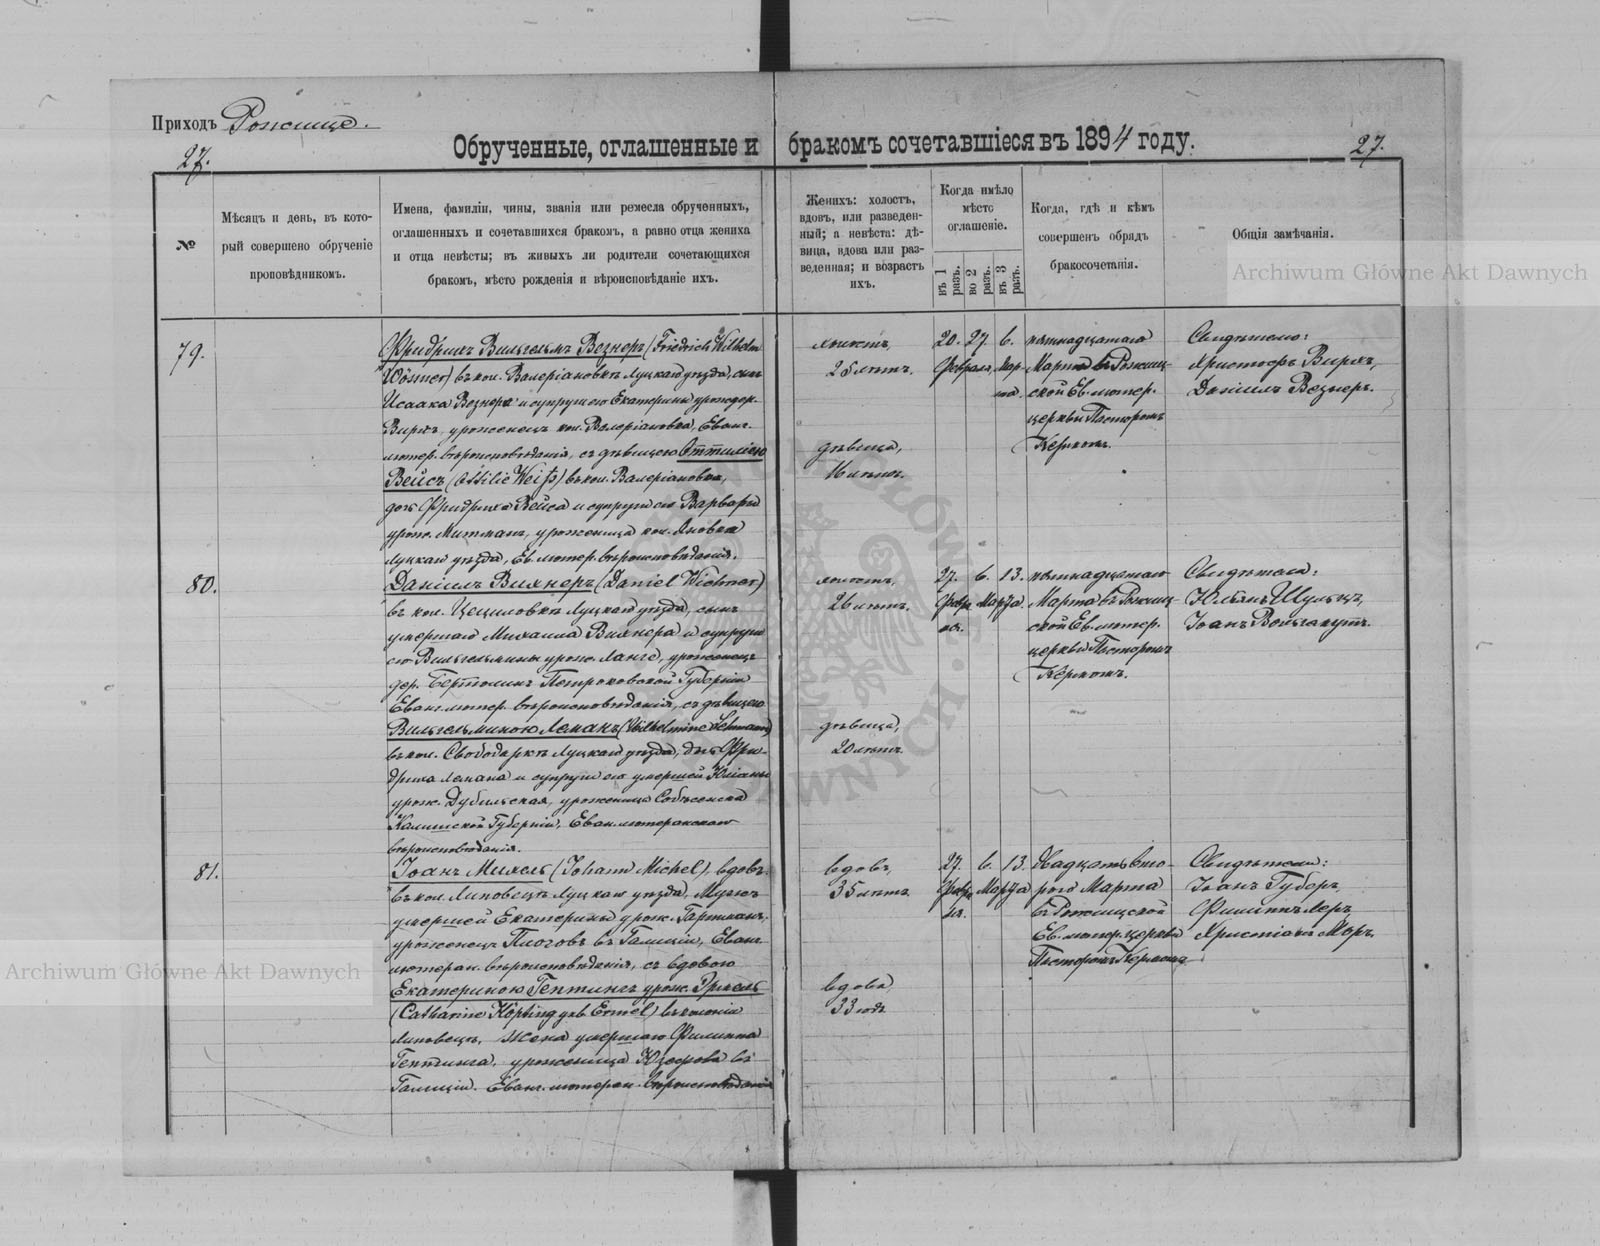 Приходъ Рожище.
27.
Обрученные, оглашенные и бракомъ сочетавшіеся въ 1894 году.
27.
№
Мѣсяцъ и день, въ кото-
рый совершено обрученіе
проповѣдникомъ.
Имена, фамиліи, чины, званія или ремесла обрученныхъ,
оглашенныхъ и сочетавшихся бракомъ, а равно отца жениха
и отца невѣсты; въ живыхъ ли родители сочетающихся
бракомъ, мѣсто рожденія и вѣроисповѣданіе ихъ.
Женихъ: холостъ,
вдовъ, или разведен-
ный; а невѣста: дѣ-
вица, вдова или раз-
веденная; и возрастъ
ихъ.
Когда имѣло
мѣсто
оглашеніе.
въ 1 разъ.
во 2 разъ.
въ 3 разъ.
Когда, гдѣ и кѣмъ
совершенъ обрядъ
бракосочетанія.
Общія замѣчанія.
79.
Фридрихъ Вильгельмъ Везнеръ (Friedrich Wilhelm
Wösner) въ кол. Валеріановкѣ Луцкаго уѣзда, сынъ
Исаака Везнера и супруги его Екатерины урожден.
Вирхъ, уроженецъ кол. Валеріановка, Еванг.
лютер. вѣроисповѣданія, съ дѣвицею Оттиліею
Вейсъ (Ottilie Weiß) въ кол. Валеріановка,
дочь Фридриха Вейса и супруги его Варвары
урож. Митманъ, уроженица кол. Яновка
Луцкаго уѣзда, Ев. лютер. вѣроисповѣданія.
холостъ,
25 лѣтъ.
дѣвица,
16 лѣтъ.
20. 27. 6.
Февраля, Мар-
та.
пятнадцатаго
Марта въ Рожищ-
ской Ев. лютер.
церкви Пасторомъ
Кермомъ.
Свидѣтели:
Христофъ Вирхъ,
Даніилъ Везнеръ.
80.
Даніилъ Вихнеръ (Daniel Wichner)
въ кол. Цециловкѣ Луцкаго уѣзда, сынъ
умершаго Михаила Вихнера и супруги
его Вильгельмины урож. Ланге, уроженецъ
дер. Петроковской Губерніи
Еванг. лютер. вѣроисповѣданія, съ дѣвицею
Вильгельминою Леманъ (Wilhelmine Lehmann)
въ кол. Свободаркѣ Луцкаго уѣзда, дочь Фри-
дриха Лемана и супруги его умершей Юліаны
урож. Дубильская, уроженица
Калишской Губерніи, Еван. лютеранскаго
вѣроисповѣданія.
холостъ,
26 лѣтъ.
дѣвица,
20 лѣтъ.
27. 6. 13.
Февра Марта
ля.
пятнадцатаго
Марта въ Рожищ-
ской Ев. лютер.
церкви Пасторомъ
Кермомъ.
Свидѣтели:
Юліанъ Шульцъ,
Іоанъ
81.
Іоанъ Михель (Johann Michel), вдовъ
въ кол. Липовецъ Луцкаго уѣзда, Мужъ
умершей Екатерины урож. Гартманъ,
уроженецъ въ Галиціи, Еванг.
лютеран. вѣроисповѣданія, съ вдовою
Екатериною Гептингъ урож. Эрмель
(Catharine Höpting geb Ermel) въ колоніи
Липовецъ, Жена умершаго Филиппа
Гептинга, уроженица Юзефова въ
Галиціи. Еванг. лютеран. вѣроисповѣданія
вдовъ,
35 лѣтъ.
вдова
33 года.
27. 6. 13.
Февра Марта
ля.
Двадцать вто-
рого Марта
въ Рожищской
Ев. лютер. церкви
Пасторомъ Кермомъ
Свидѣтели:
Іоанъ Губеръ,
Филиппъ Леръ,
Христіанъ Моръ.
Archiwum Główne Akt Dawnych
Archiwum Główne Akt Dawnych